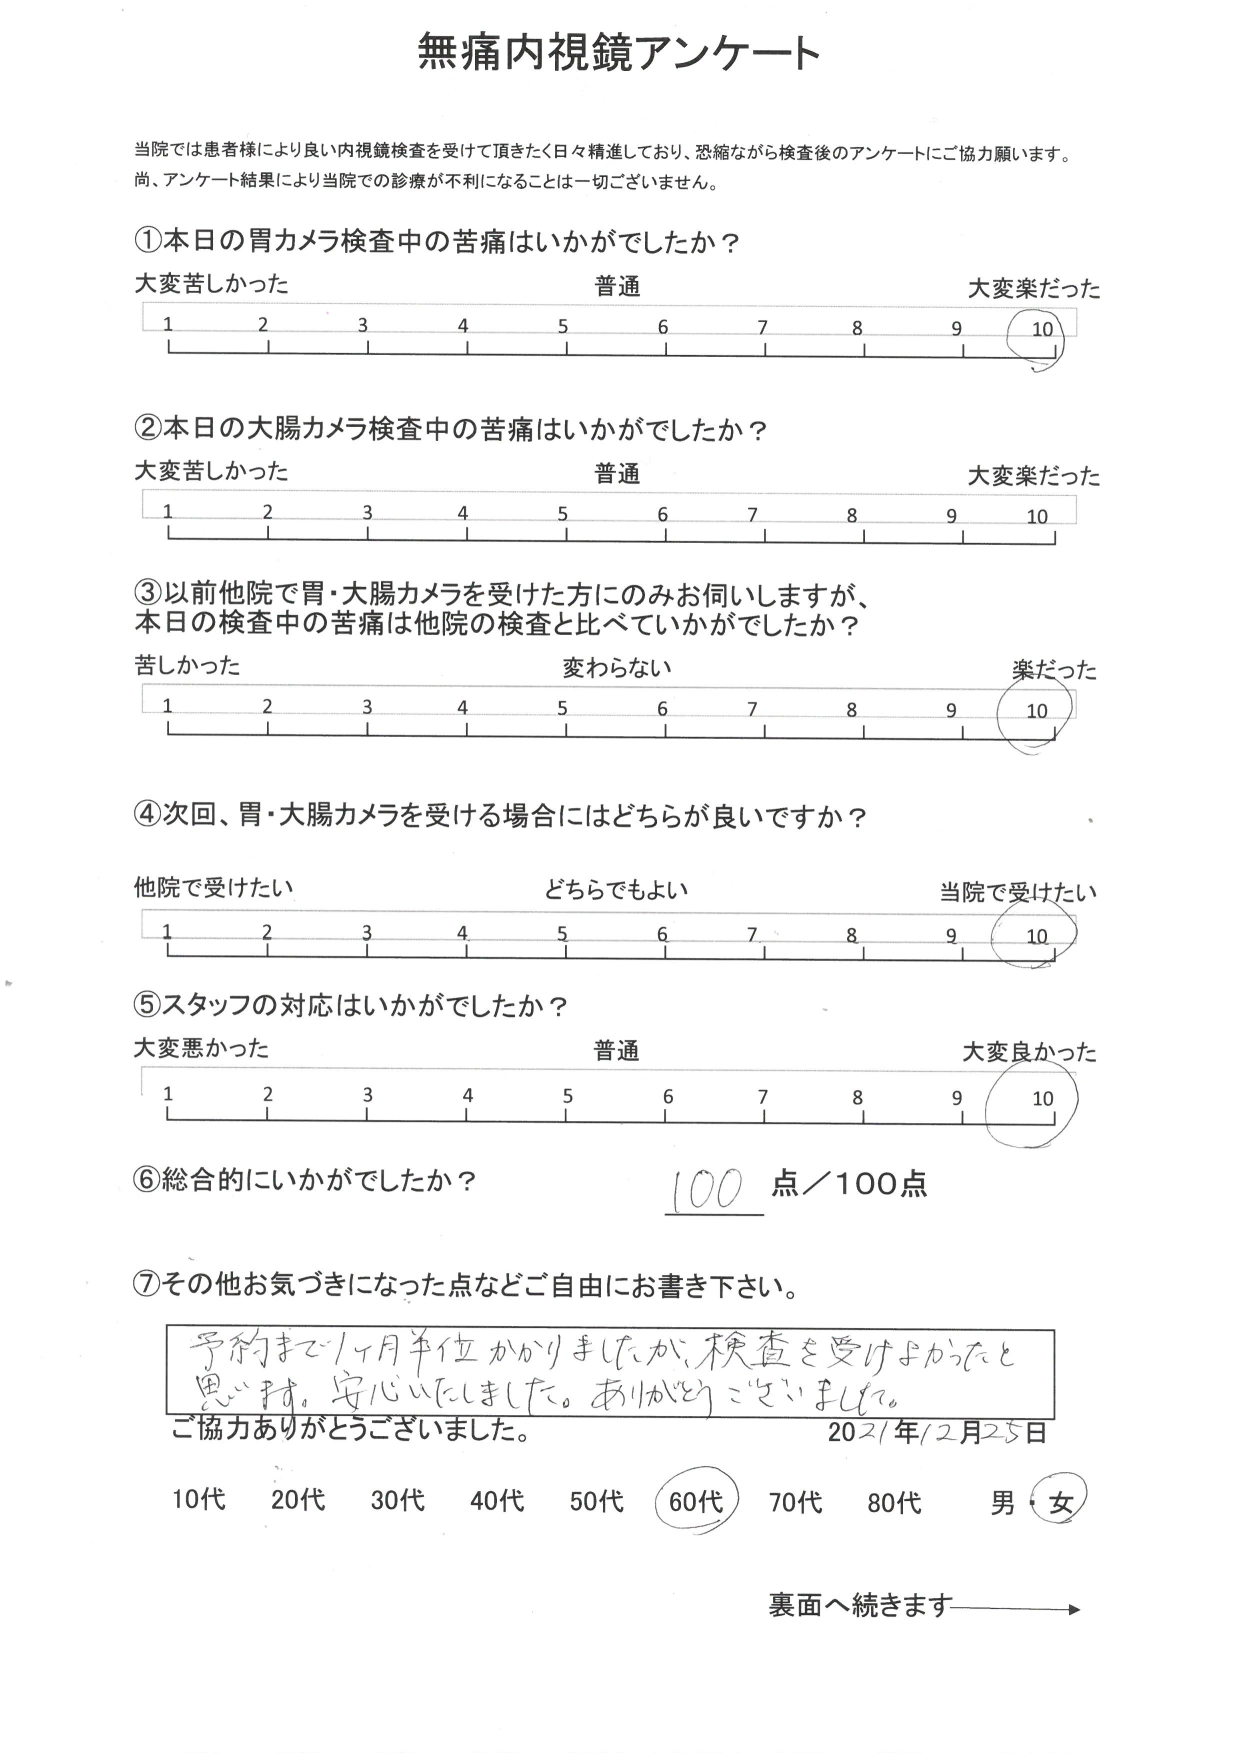 無痛内視鏡アンケート
当院では患者様により良い内視鏡検査を受けて頂きたく日々精進しており、恐縮ながら検査後のアンケートにご協力願います。
尚、アンケート結果により当院での診療が不利になることは一切ございません。
①本日の胃カメラ検査中の苦痛はいかがでしたか？
大変苦しかった 普通 大変楽だった
1 2 3 4 5 6 7 8 9 10
②本日の大腸カメラ検査中の苦痛はいかがでしたか？
大変苦しかった 普通 大変楽だった
1 2 3 4 5 6 7 8 9 10
③以前他院で胃・大腸カメラを受けた方にのみお伺いしますが、
本日の検査中の苦痛は他院の検査と比べていかがでしたか？
苦しかった 変わらない 楽だった
1 2 3 4 5 6 7 8 9 10
④次回、胃・大腸カメラを受ける場合にはどちらが良いですか？
他院で受けたい どちらでもよい 当院で受けたい
1 2 3 4 5 6 7 8 9 10
⑤スタッフの対応はいかがでしたか？
大変悪かった 普通 大変良かった
1 2 3 4 5 6 7 8 9 10
⑥総合的にいかがでしたか？ 100 点／100点
⑦その他お気づきになった点などご自由にお書き下さい。
予約まで1ヶ月半位かかりましたが、検査を受けよかったと
思います。安心いたしました。ありがとうございました。
ご協力ありがとうございました。 2021年12月25日
10代 20代 30代 40代 50代 60代 70代 80代 男・女
裏面へ続きます